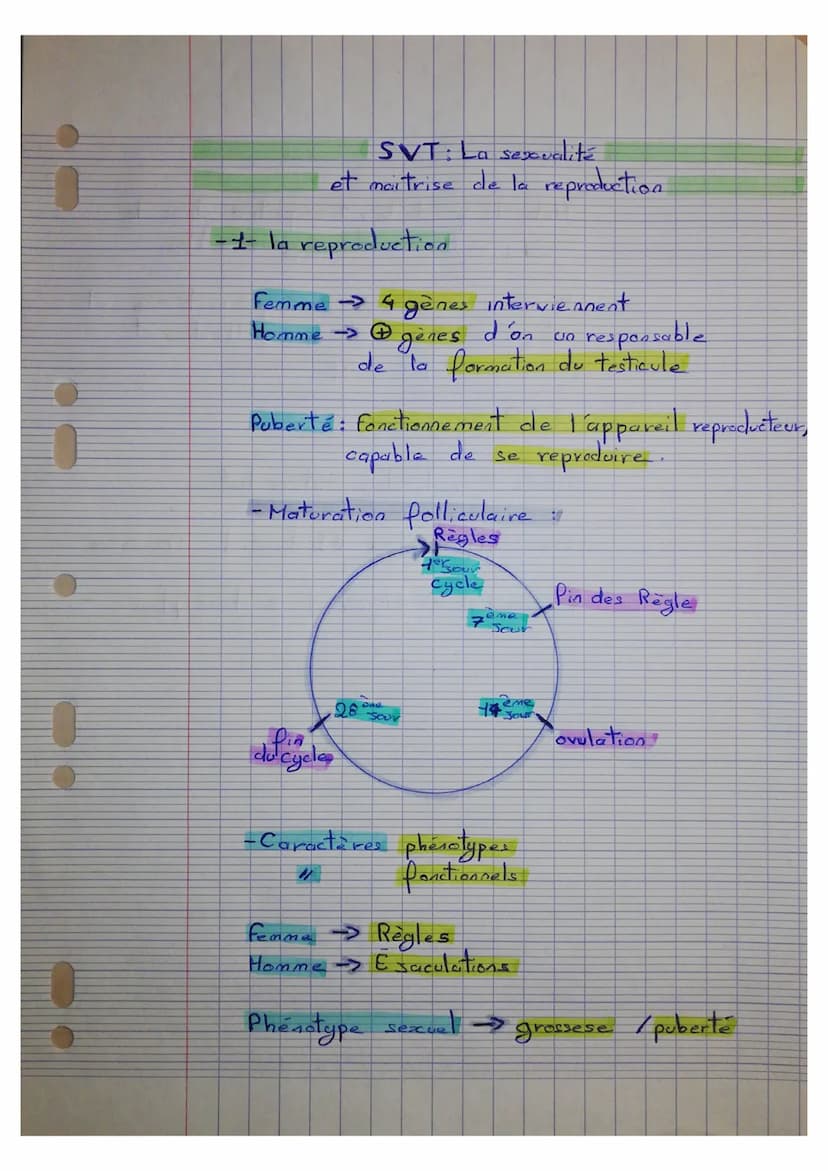 SVT: La sexualité
et maitrise de la reproduction
-1- la reproduction
Femme → 4 gènes interviennent
Homme → ⊕ gènes d'on un responsable
de la formation du testicule
Puberté: fonctionnement de l'appareil reproducteur,
capable de se reproduire.
- Maturation folliculaire :
Règles
1er jour
cycle
Fin des Règle
7ème
jour
28ème
jour
14ème
jour
fin
du cycle
ovulation
- Caractères phénotypes
" fonctionnels
Femme → Règles
Homme → Éjaculations
Phénotype sexuel → grossese / puberté